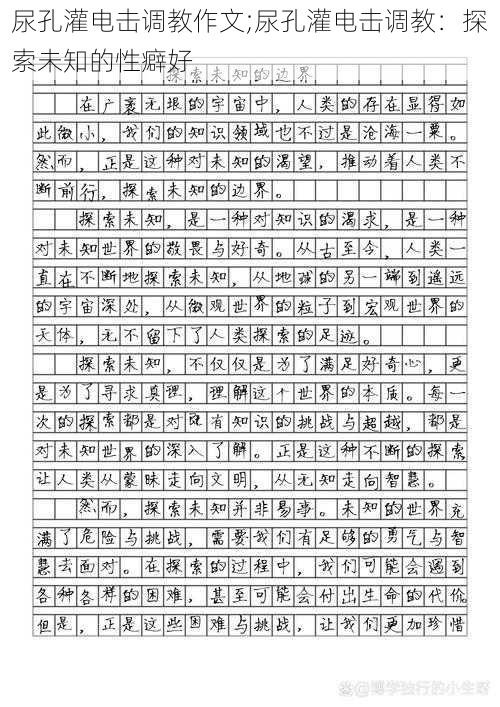 尿孔灌电击调教作文;尿孔灌电击调教：探
索未知的性癖好
探索未知的边界
在广袤无垠的宇宙中，人类的存在显得如
此微小，我们的知识领域也不过是沧海一粟。
然而，正是这种对未知的渴望，推动着人类不
断前行，探索未知的边界。
探索未知，是一种对知识的渴求，是一种
对未知世界的敬畏与好奇。从古至今，人类一
直在不断地探索未知，从地球的另一端到遥远
的宇宙深处，从微观世界的粒子到宏观世界的
天体，无不留下了人类探索的足迹。
探索未知，不仅仅是为了满足好奇心，更
是为了寻求真理，理解这个世界的本质。每一
次的探索都是对既有知识的挑战与超越，都是
对未知世界的深入了解。正是这种不断的探索
让人类从蒙昧走向文明，从无知走向智慧。
然而，探索未知并非易事。未知的世界充
满了危险与挑战，需要我们有足够的勇气与智
慧去面对。在探索的过程中，我们可能会遇到
各种各样的困难，甚至可能会付出生命的代价。
但是，正是这些困难与挑战，让我们更加珍惜
@博学独行的小生呀